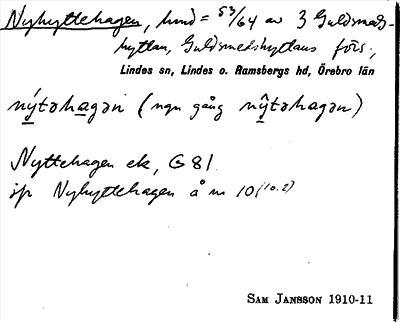 Nyhyttehagen, hmd = 53/64 av 3 Guldsmeds-
hyttan, Guldsmedshyttans förs.,
Lindes sn, Lindes o. Ramsbergs hd, Örebro län
nýtəhagən (ngn gång nŷtəhagən)
Nyttehagen ek, G 81
jfr Nyhyttehagen å nr 10 (10.2)
SAM JANSSON 1910-11